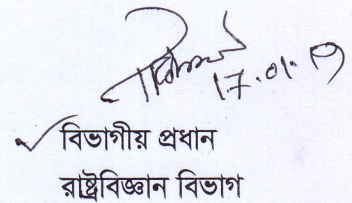 17.01.19
বিভাগীয় প্রধান
রাষ্ট্রবিজ্ঞান বিভাগ